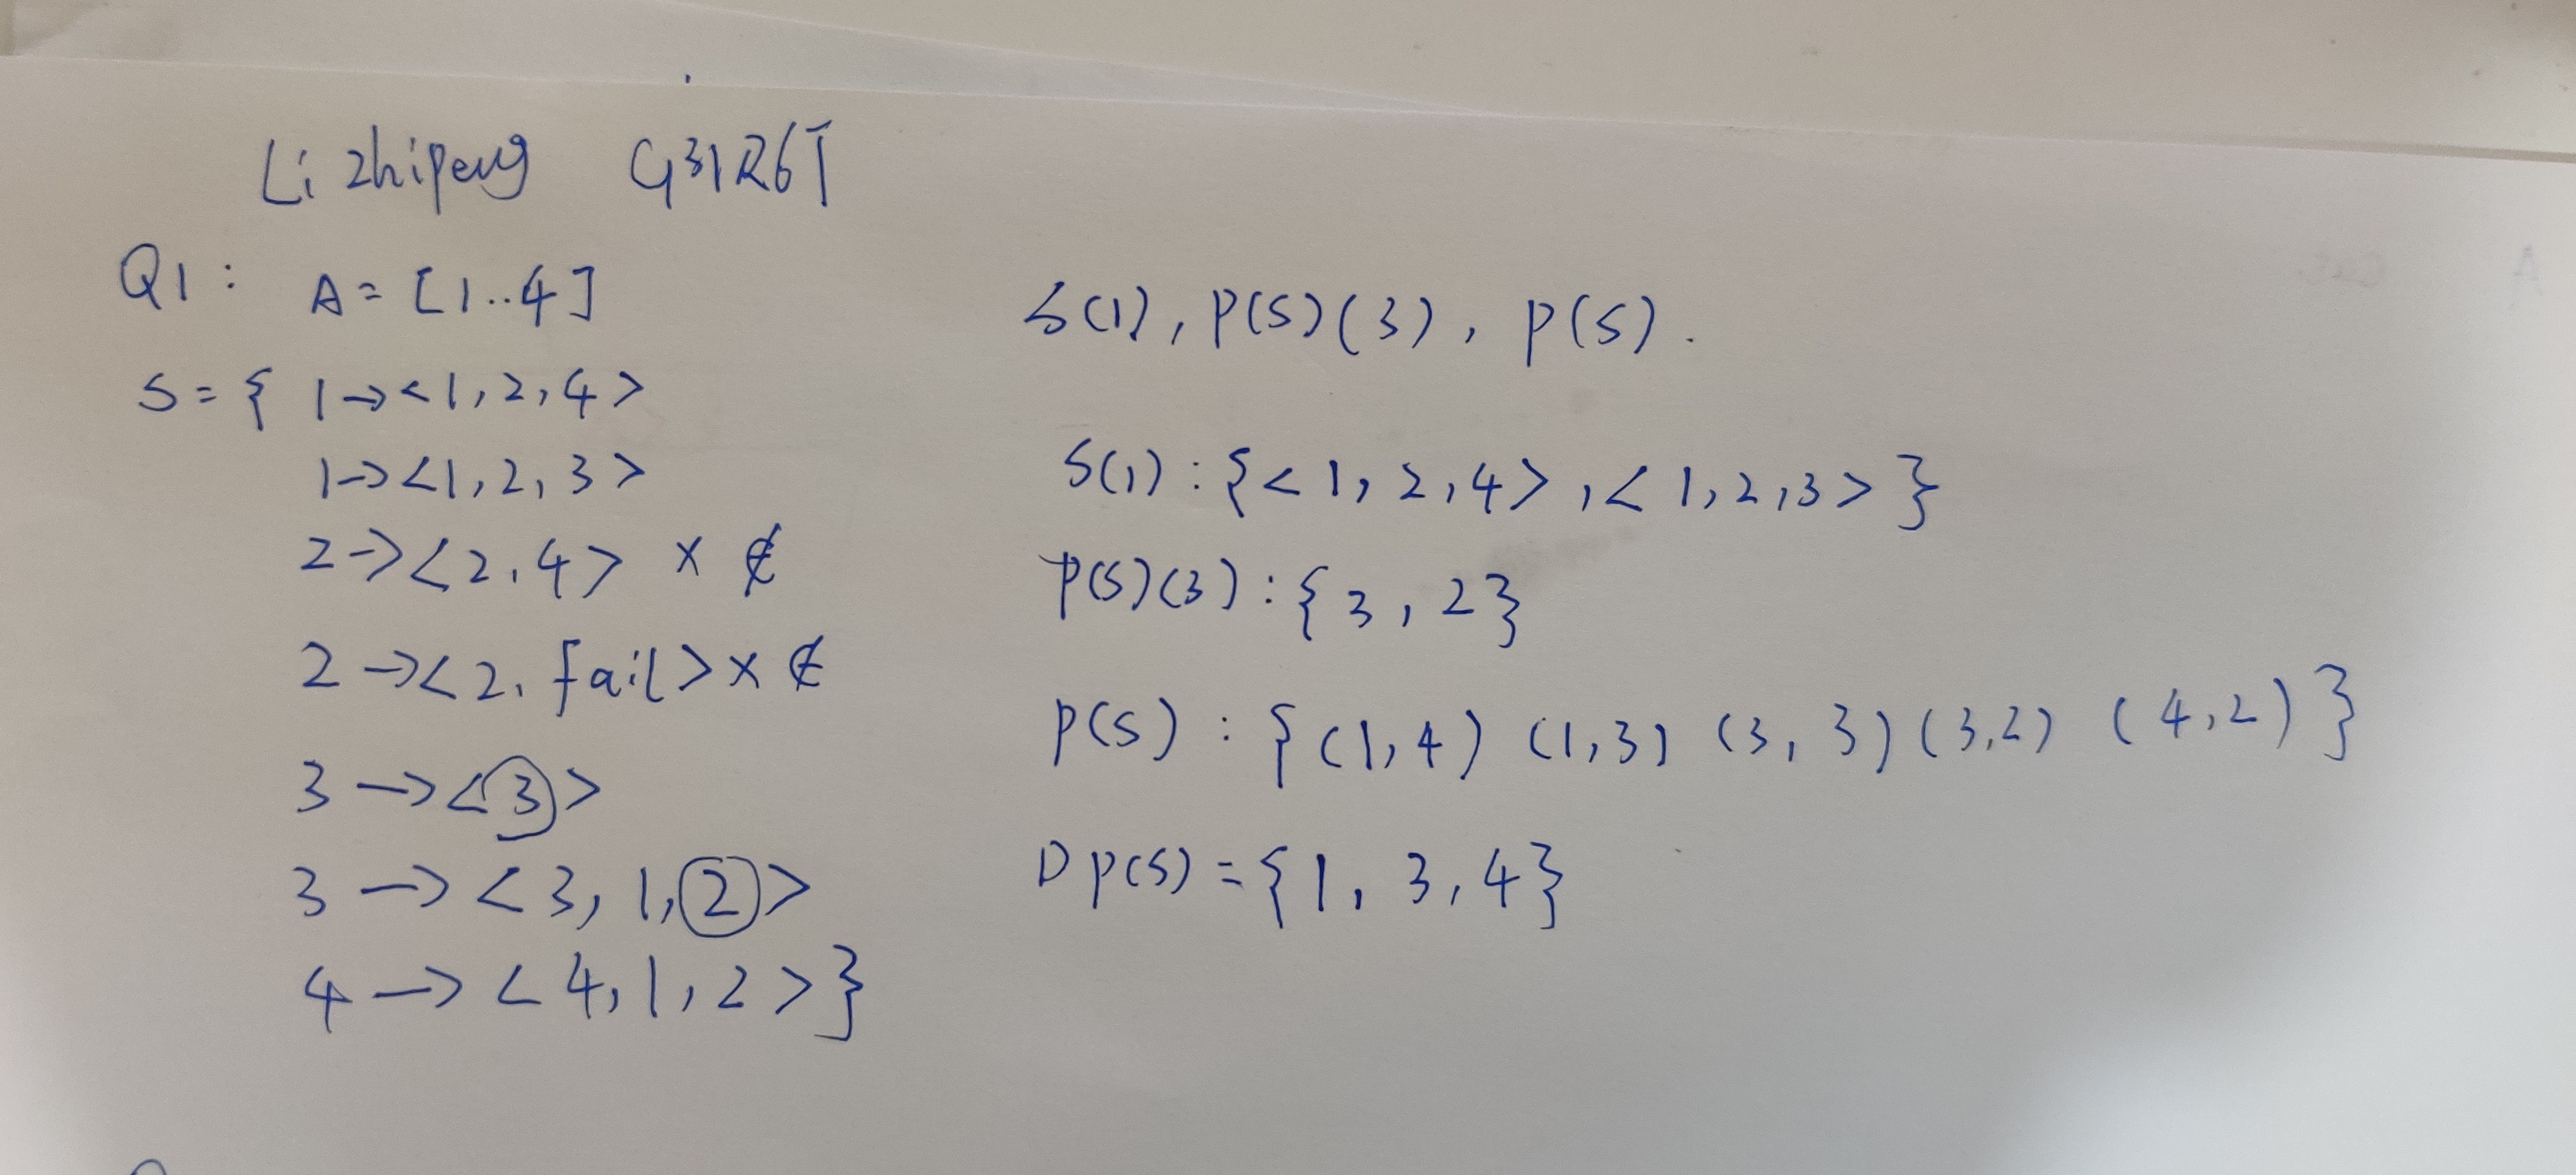 Li Zhipeng G31R6T
Q1: A = [1..4]
S = { 1 → <1, 2, 4>
1 → <1, 2, 3>
2 → <2, 4> × ∉
2 → <2, fail> × ∉
3 → <3>
3 → <3, 1, 2>
4 → <4, 1, 2> }
S(1), P(S)(3), P(S).
S(1) : {<1, 2, 4>, <1, 2, 3>}
P(S)(3) : {3, 2}
P(S) : {(1, 4) (1, 3) (3, 3) (3, 2) (4, 2)}
D P(S) = {1, 3, 4}